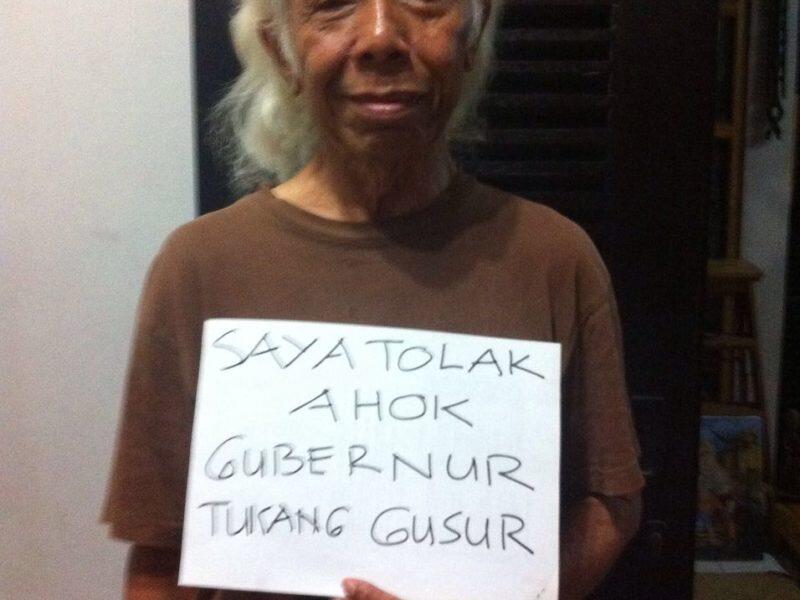 SAYA TOLAK
AHOK
GUBERNUR
TUKANG GUSUR